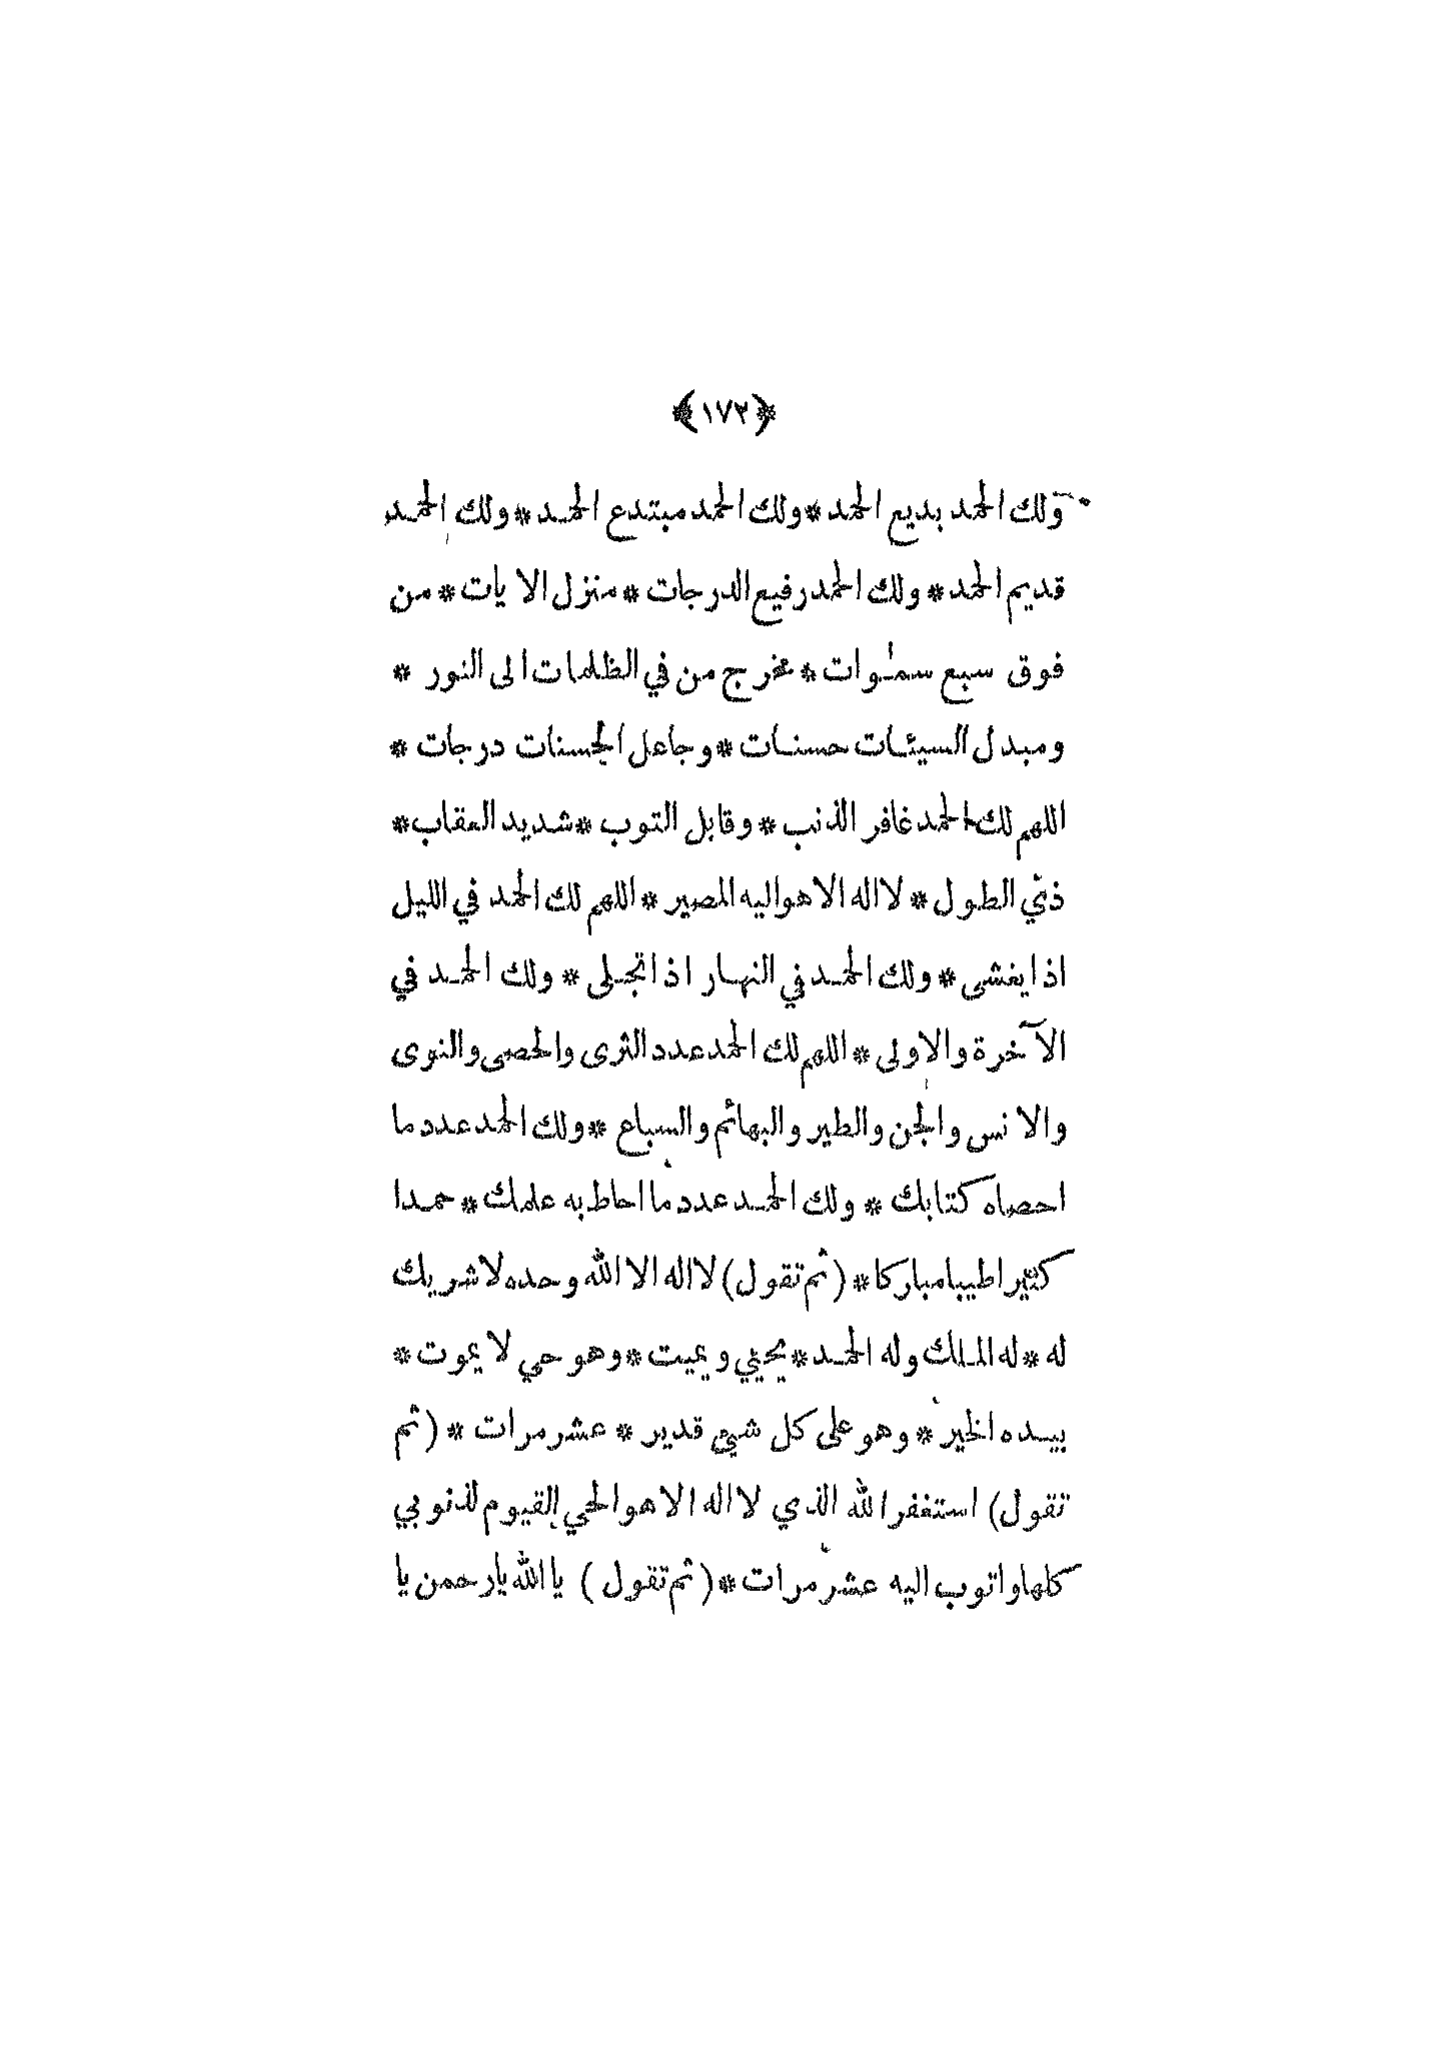 ﴿١٧٢﴾
ولك الحمد بديع الحمد * ولك الحمد مبتدع الحمد * ولك الحمد
قديم الحمد * ولك الحمد رفيع الدرجات * منزل الايات * من
فوق سبع سمٰوات * مخرج من في الظلمات الى النور *
ومبدل السيئات حسنات * وجاعل الحسنات درجات *
اللهم لك الحمد غافر الذنب * وقابل التوب * شديد العقاب *
ذي الطول * لا اله الا هو اليه المصير * اللهم لك الحمد في الليل
اذا يغشى * ولك الحمد في النهار اذا تجلى * ولك الحمد في
الآخرة والاولى * اللهم لك الحمد عدد الثرى والحصى والنوى
والانس والجن والطير والبهائم والسباع * ولك الحمد عدد ما
احصاه كتابك * ولك الحمد عدد ما احاط به علمك * حمدا
كثيرا طيبا مباركا * (ثم تقول) لا اله الا الله وحده لا شريك
له * له الملك وله الحمد * يحيي ويميت * وهو حي لا يموت *
بيده الخير * وهو على كل شيء قدير * عشر مرات * (ثم
تقول) استغفر الله الذي لا اله الا هو الحي القيوم لذنوبي
كلها واتوب اليه عشر مرات * (ثم تقول) يا الله يا رحمن يا